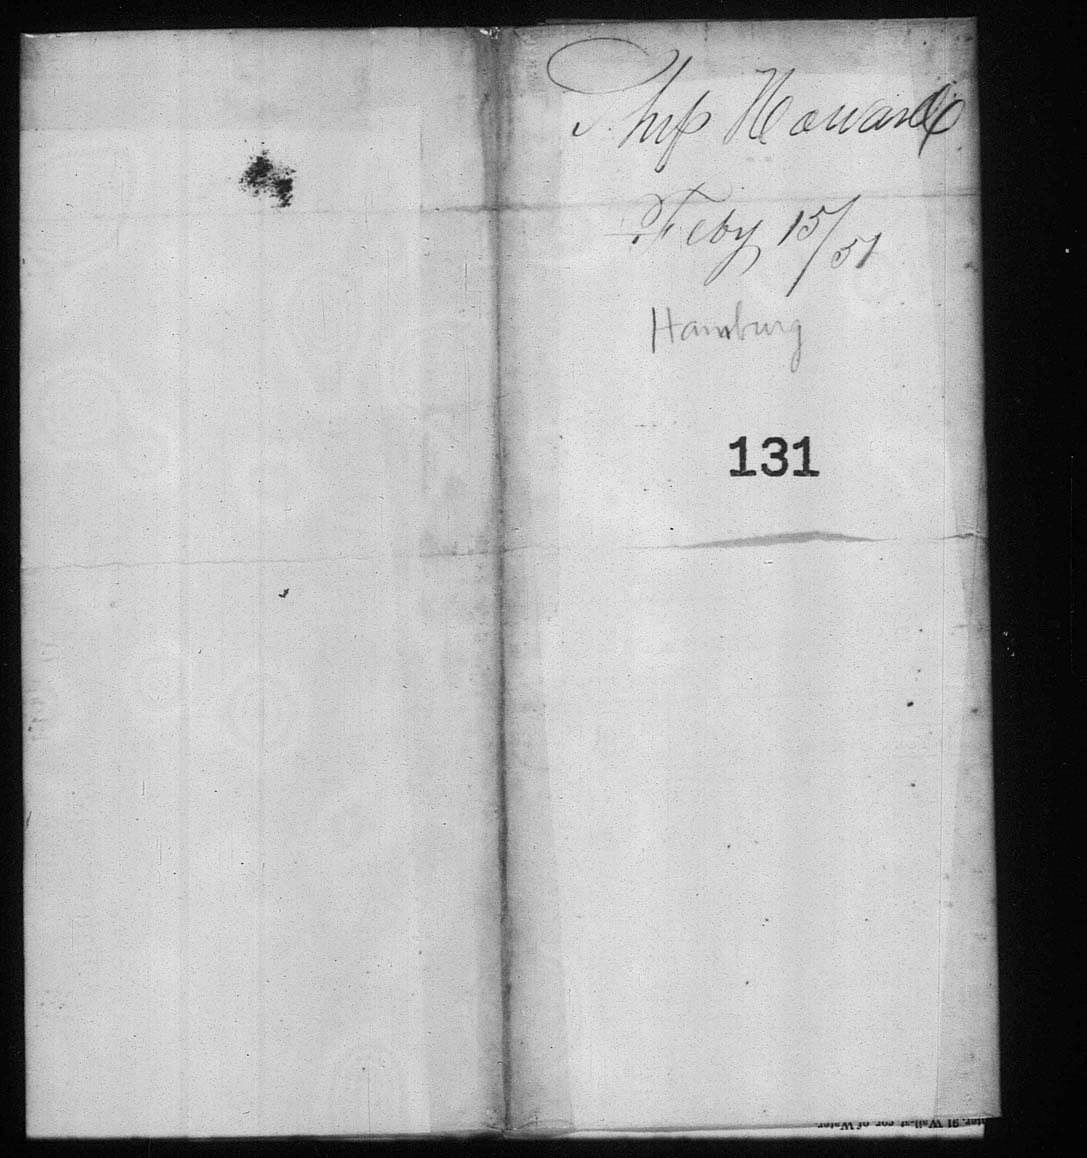 Ship Howard
Feby 15/51
Hamburg
131
91 Wall-st. cor. of Water.